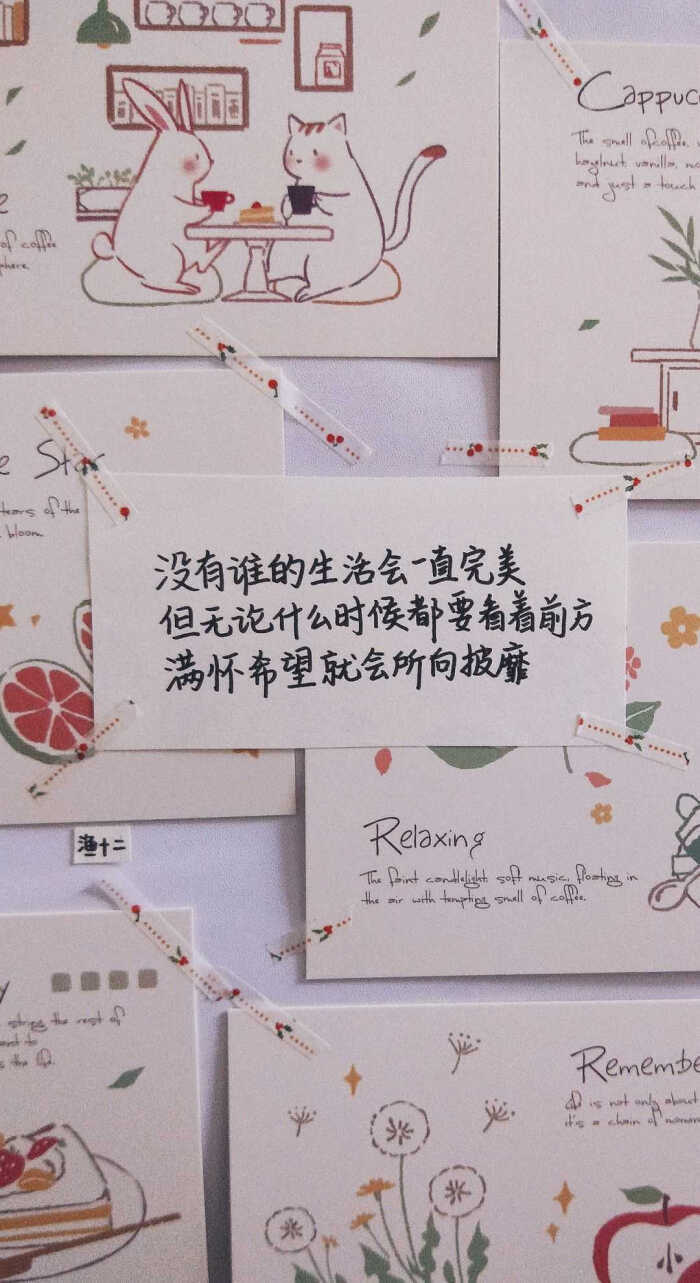 Cappuc
The smell of coffee,
hazelnut, vanilla,
and just a touch
of coffee
phere.
e Star
tears of the
bloom.
没有谁的生活会一直完美
但无论什么时候都要看着前方
满怀希望就会所向披靡
渔十二
Relaxing
The faint candlelight, soft music, floating in
the air with tempting smell of coffee.
y
string the rest of
and to
s the life.
Remembe
is not only about
it's a chain of